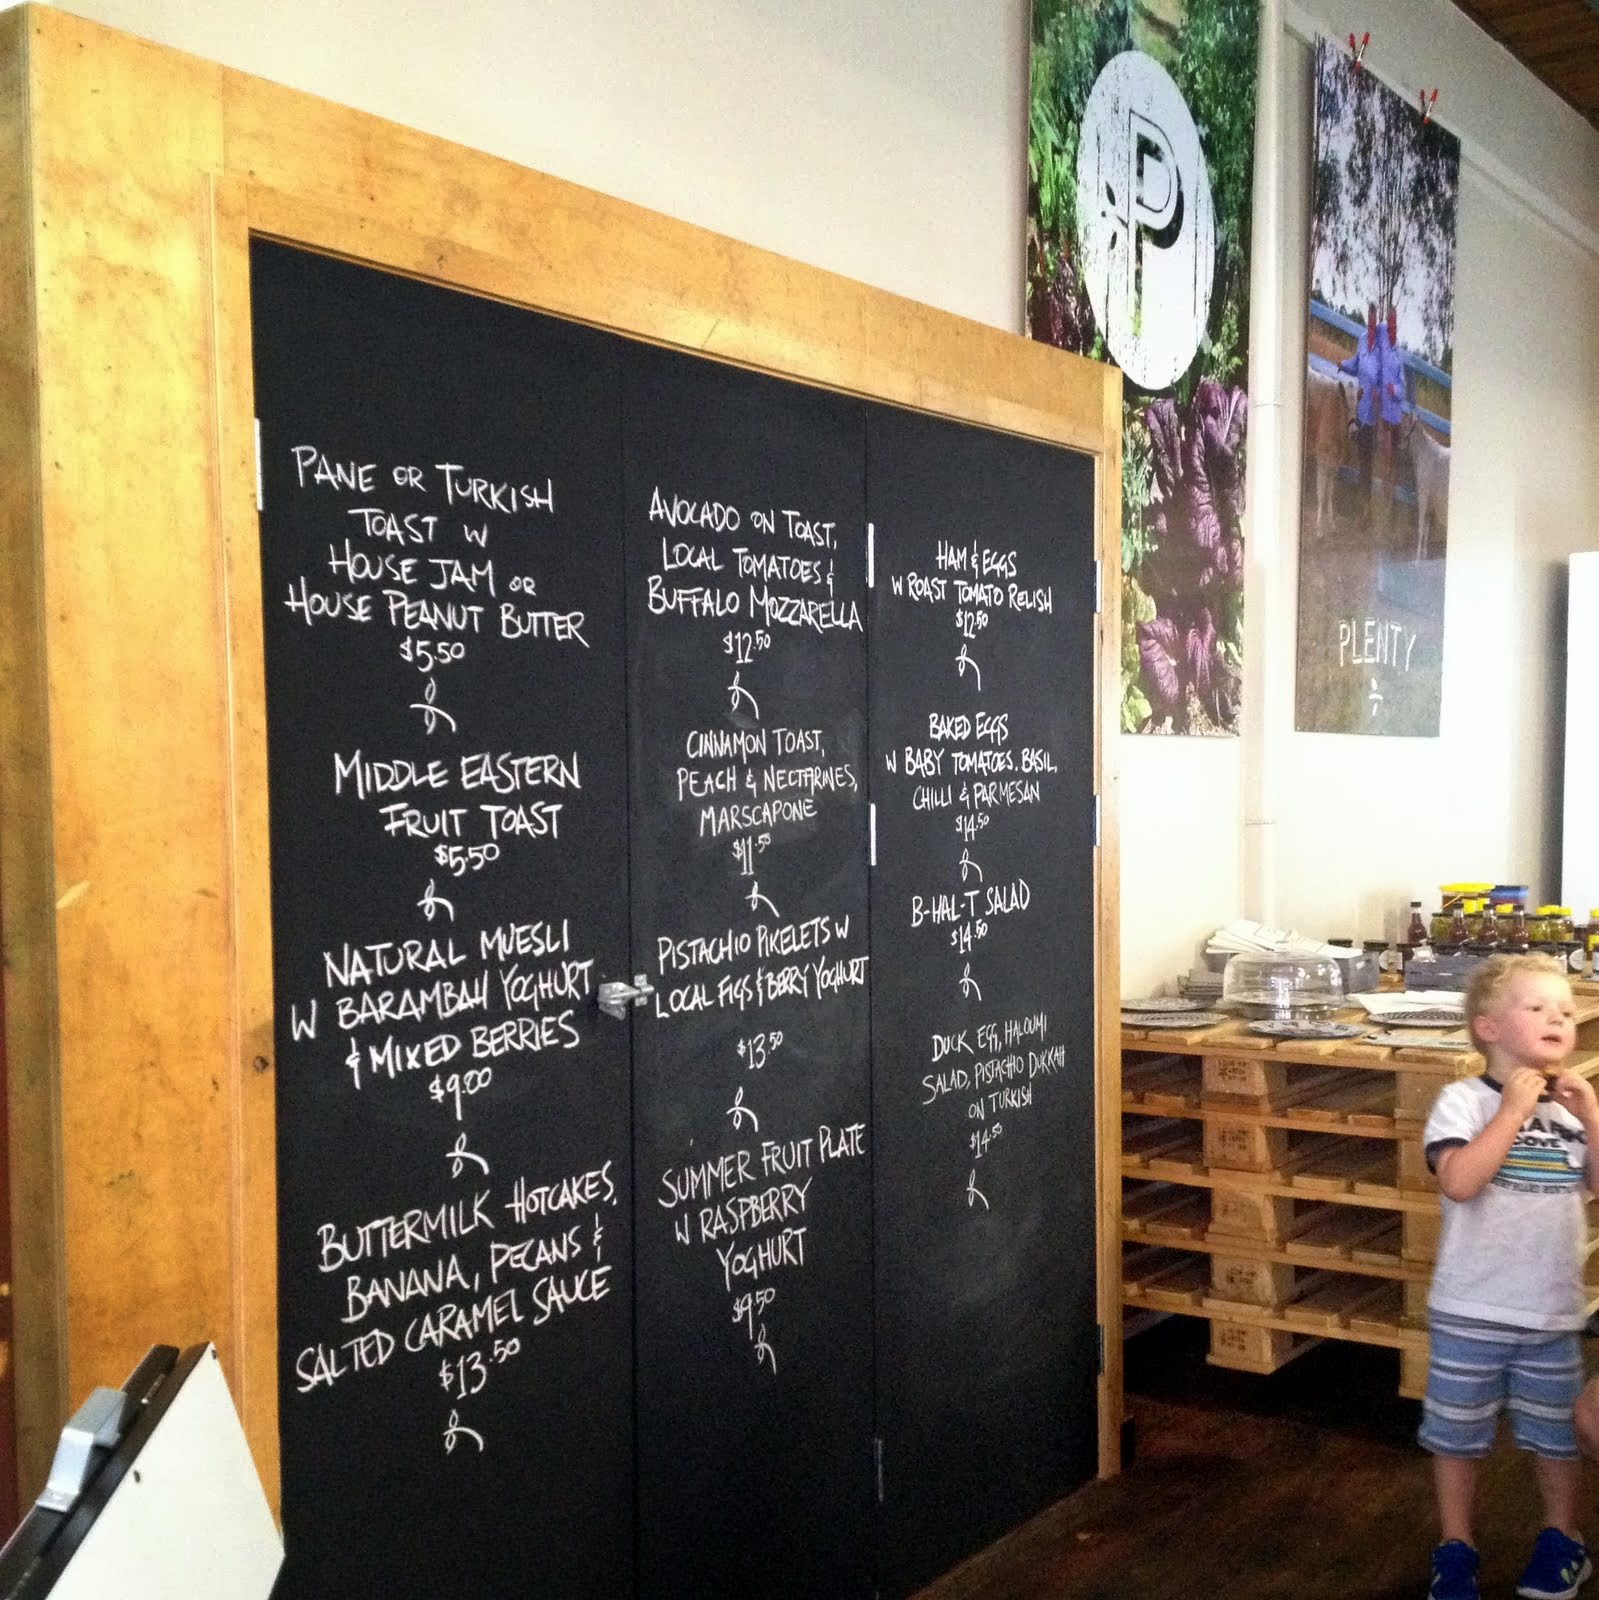 PANE OR TURKISH
TOAST W
HOUSE JAM OR
HOUSE PEANUT BUTTER
$5.50
MIDDLE EASTERN
FRUIT TOAST
$5.50
NATURAL MUESLI
W BARAMBAH YOGHURT
& MIXED BERRIES
$9.00
BUTTERMILK HOTCAKES,
BANANA, PECANS &
SALTED CARAMEL SAUCE
$13.50
AVOCADO ON TOAST,
LOCAL TOMATOES &
BUFFALO MOZZARELLA
$12.50
CINNAMON TOAST,
PEACH & NECTARINES,
MARSCAPONE
$11.50
PISTACHIO PIKELETS W
LOCAL FIGS & BERRY YOGHURT
$13.50
SUMMER FRUIT PLATE
W RASPBERRY
YOGHURT
$9.50
HAM & EGGS
W ROAST TOMATO RELISH
$12.50
BAKED EGGS
W BABY TOMATOES, BASIL,
CHILLI & PARMESAN
$14.50
B-HAL-T SALAD
$14.50
DUCK EGG, HALOUMI
SALAD, PISTACHIO DUKKAH
ON TURKISH
$14.50
P
PLENTY